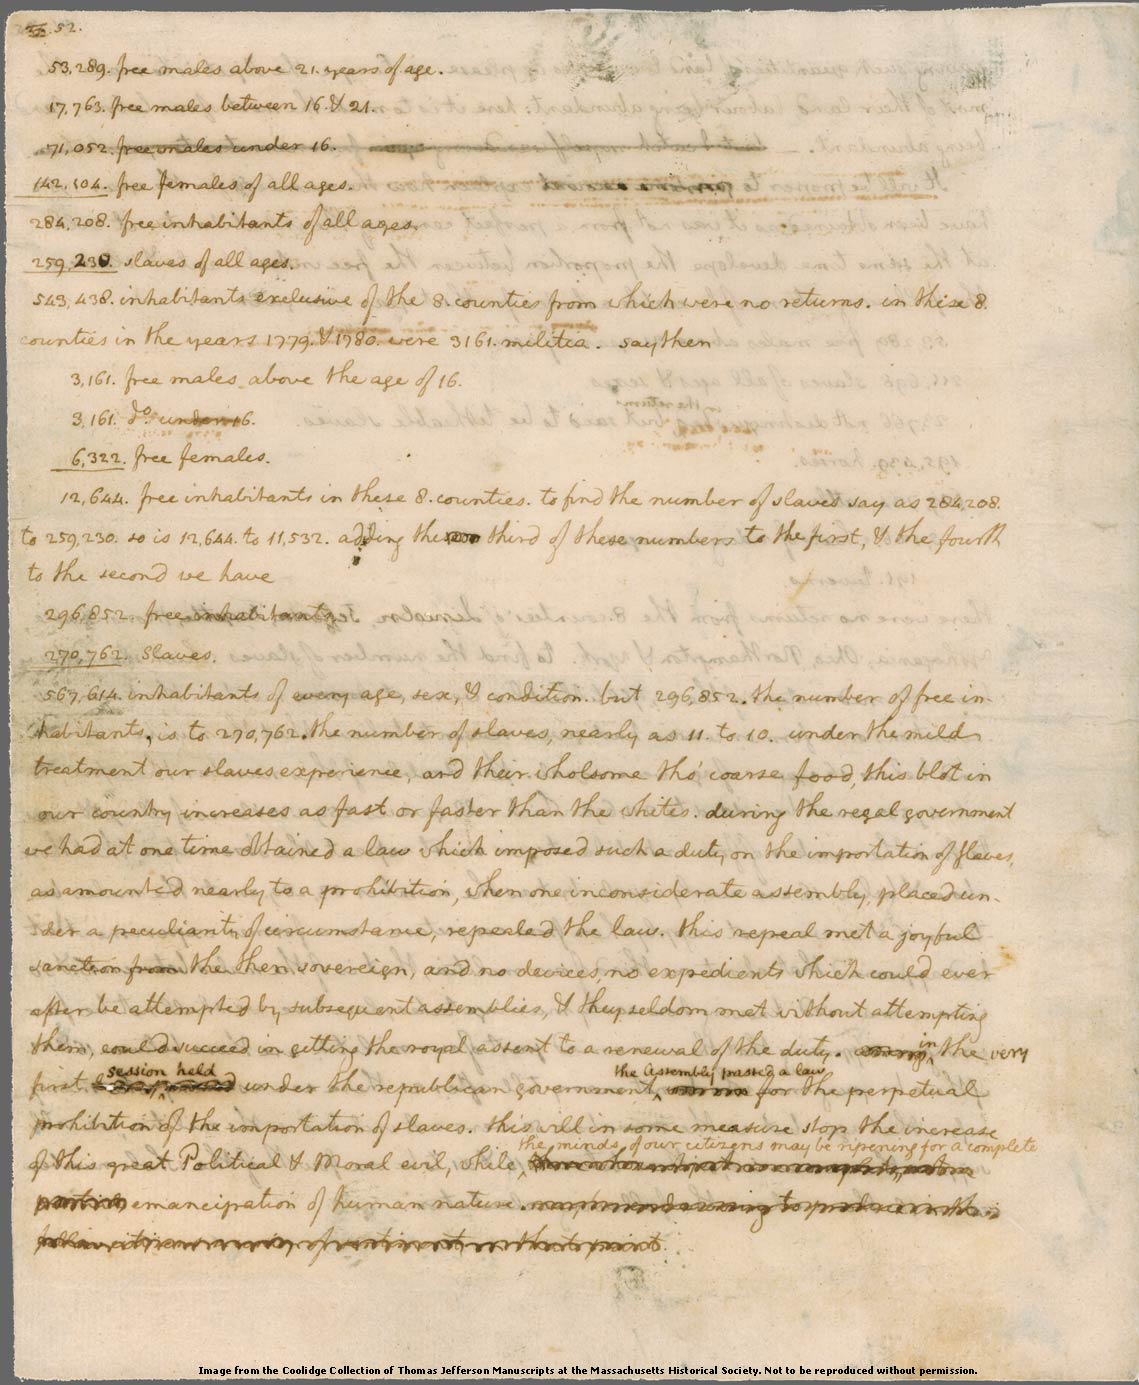 52.
53,289. free males above 21. years of age.
17,763. free males between 16. & 21.
71,052. free males under 16.
142,104. free females of all ages.
284,208. free inhabitants of all ages.
259,230. slaves of all ages.
543,438. inhabitants exclusive of the 8. counties from which were no returns. in these 8.
counties in the years 1779. & 1780. were 3161. militia. say then
3,161. free males above the age of 16.
3,161. do. under 16.
6,322. free females.
12,644. free inhabitants in these 8. counties. to find the number of slaves say as 284,208.
to 259,230. so is 12,644. to 11,532. adding the third of these numbers to the first, & the fourth
to the second we have
296,852. free inhabitants
270,762. slaves.
567,614. inhabitants of every age, sex, & condition. but 296,852. the number of free in-
habitants, is to 270,762. the number of slaves, nearly as 11. to 10. under the mild
treatment our slaves experience, and their wholsome tho' coarse food, this blot in
our country increases as fast or faster than the whites. during the regal government
we had at one time obtained a law which imposed such a duty on the importation of slaves,
as amounted nearly to a prohibition, when one inconsiderate assembly, placed un-
der a peculiarity of circumstance, repealed the law. this repeal met a joyful
sanction from the then sovereign, and no devices, no expedients which could ever
after be attempted by subsequent assemblies, & they seldom met without attempting
them, could succeed in getting the royal assent to a renewal of the duty. in the very
first session held under the republican government, the Assembly passed a law for the perpetual
prohibition of the importation of slaves. this will in some measure stop the increase
of this great Political & Moral evil, while the minds of our citizens may be ripening for a complete
emancipation of human nature.
Image from the Coolidge Collection of Thomas Jefferson Manuscripts at the Massachusetts Historical Society. Not to be reproduced without permission.